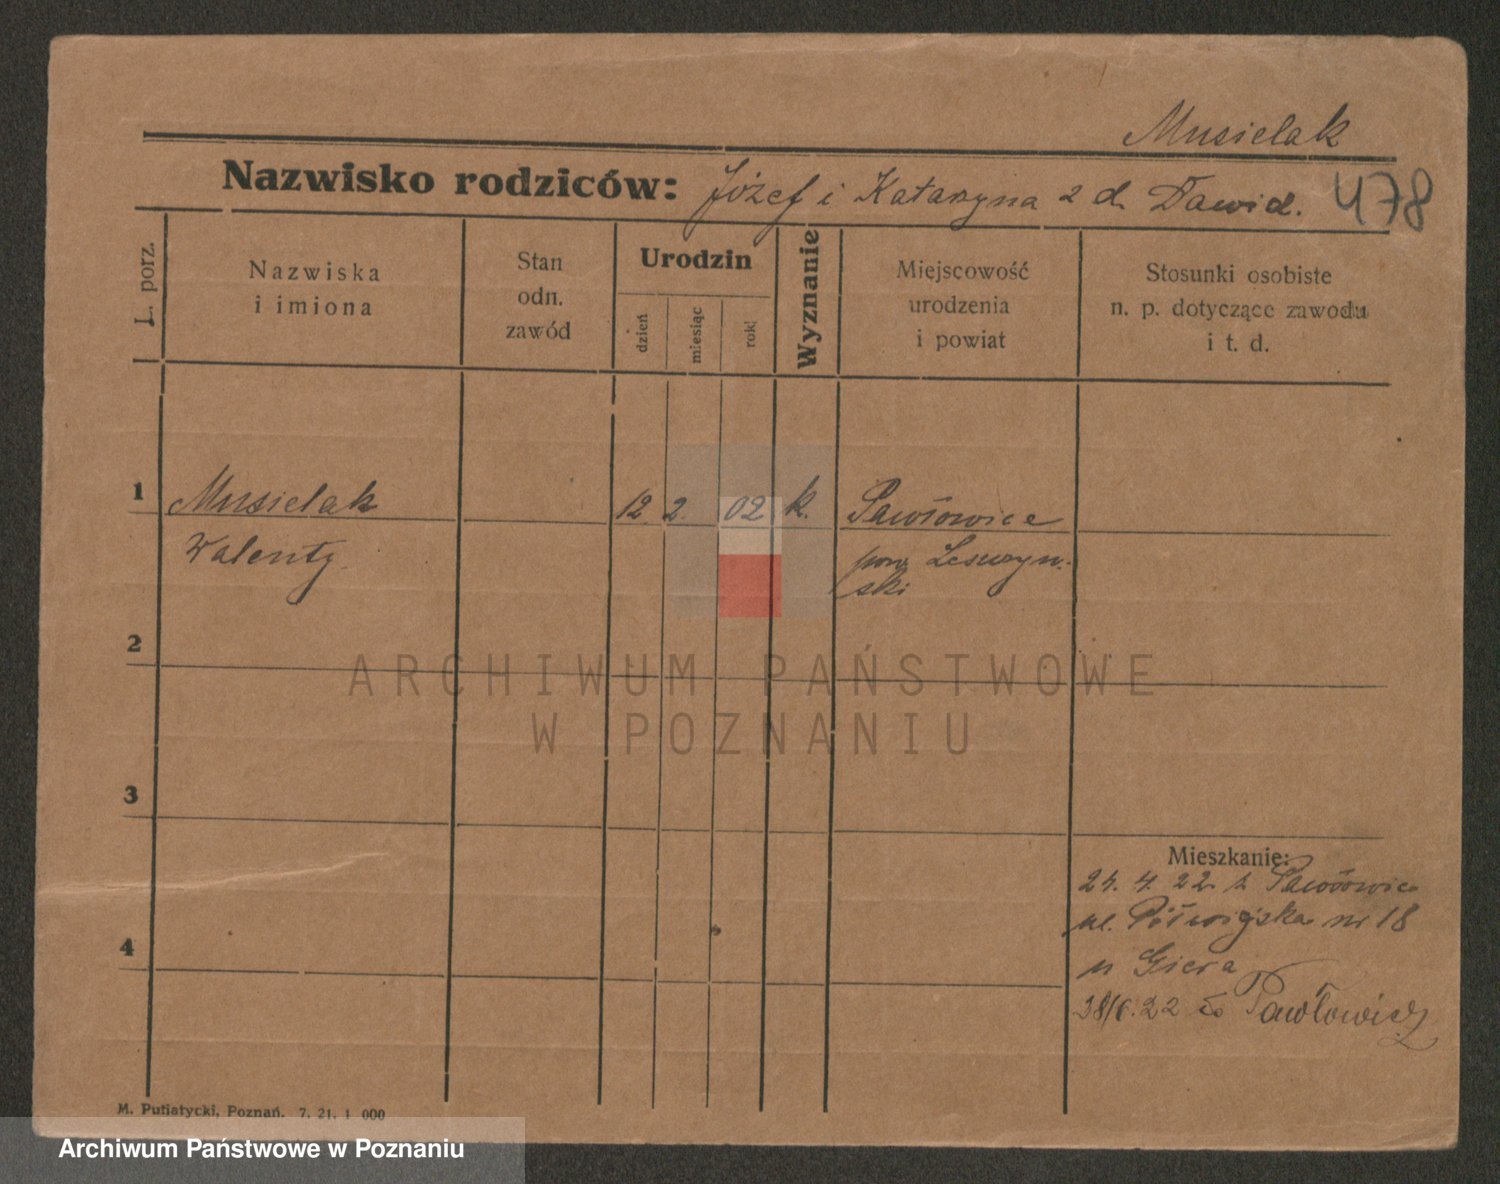 Musielak
Nazwisko rodziców: Józef i Katarzyna z d. Dawid. 478
L. porz.
Nazwiska
i imiona
Stan
odn.
zawód
Urodzin
dzień
miesiąc
rok
Wyznanie
Miejscowość
urodzenia
i powiat
Stosunki osobiste
n. p. dotyczące zawodu
i t. d.
1 Musielak 12. 2. 02 k. Pawłowice
Walenty pow. Leszczyń-
ski
2
3
4
Mieszkanie:
24. 4. 22 z Pawłowic
ul. Półwiejska nr 18
u Giera
28/6. 22 do Pawłowic
M. Putiatycki, Poznań. 7. 21. 1 000
ARCHIWUM PAŃSTWOWE
W POZNANIU
Archiwum Państwowe w Poznaniu